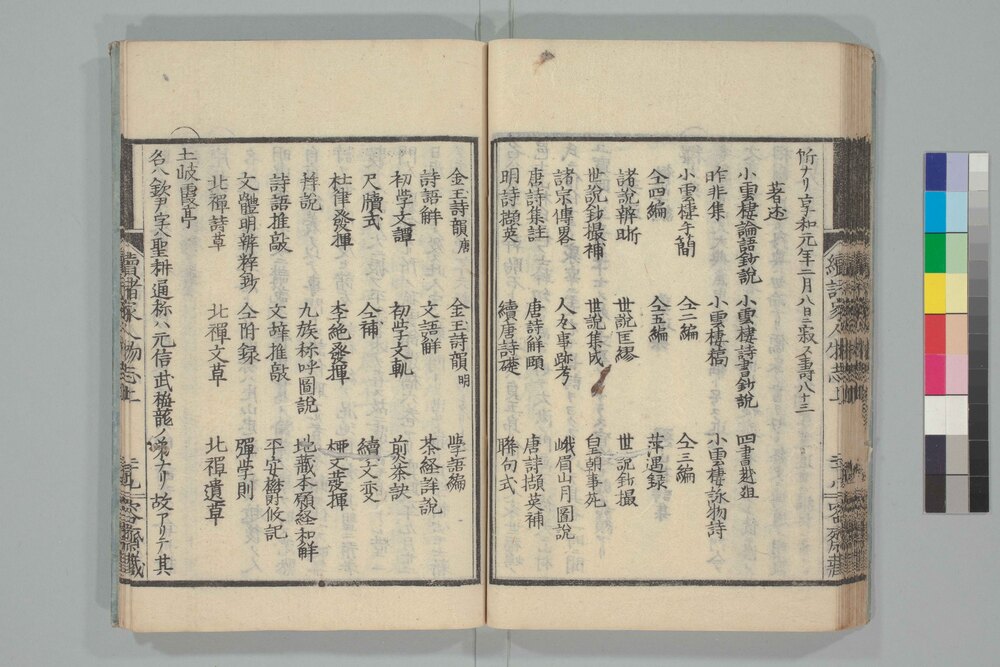 所ナリ享和元年二月八日ニ寂ス壽八十三
著述
小雲棲論語鈔說 小雲棲詩書鈔說 四書越俎
昨非集 小雲棲稿 小雲棲詠物詩
小雲棲手簡 仝二編 仝三編
仝四編 仝五編 萍遇録
諸說辨断 世說匡繆 世說鈔撮
世說鈔撮補 世說集成 皇朝事苑
諸宗傳畧 人丸事跡考 峨眉山月圖說
唐詩集註 唐詩解頤 唐詩擷英補
明詩擷英 續唐詩礎 聯句式
金王詩韻唐 金王詩韻明 學語編
詩語解 文語解 茶経詳說
初學文譚 初學文軌 煎茶訣
尺牘式 仝補 續文変
杜律發揮 李絶發揮 椏文發揮
觧説 九族称呼圖說 地藏本願経和解
詩語推敲 文辞推敲 平安欝攸記
文體明辨粹鈔 仝附録 彈學則
北禪詩草 北禪文草 北禪遺草
土岐霞亭
名ハ欽尹字ハ聖耕通称ハ元信武梅龍ノ弟ナリ故アリテ其
續諸家人物志上